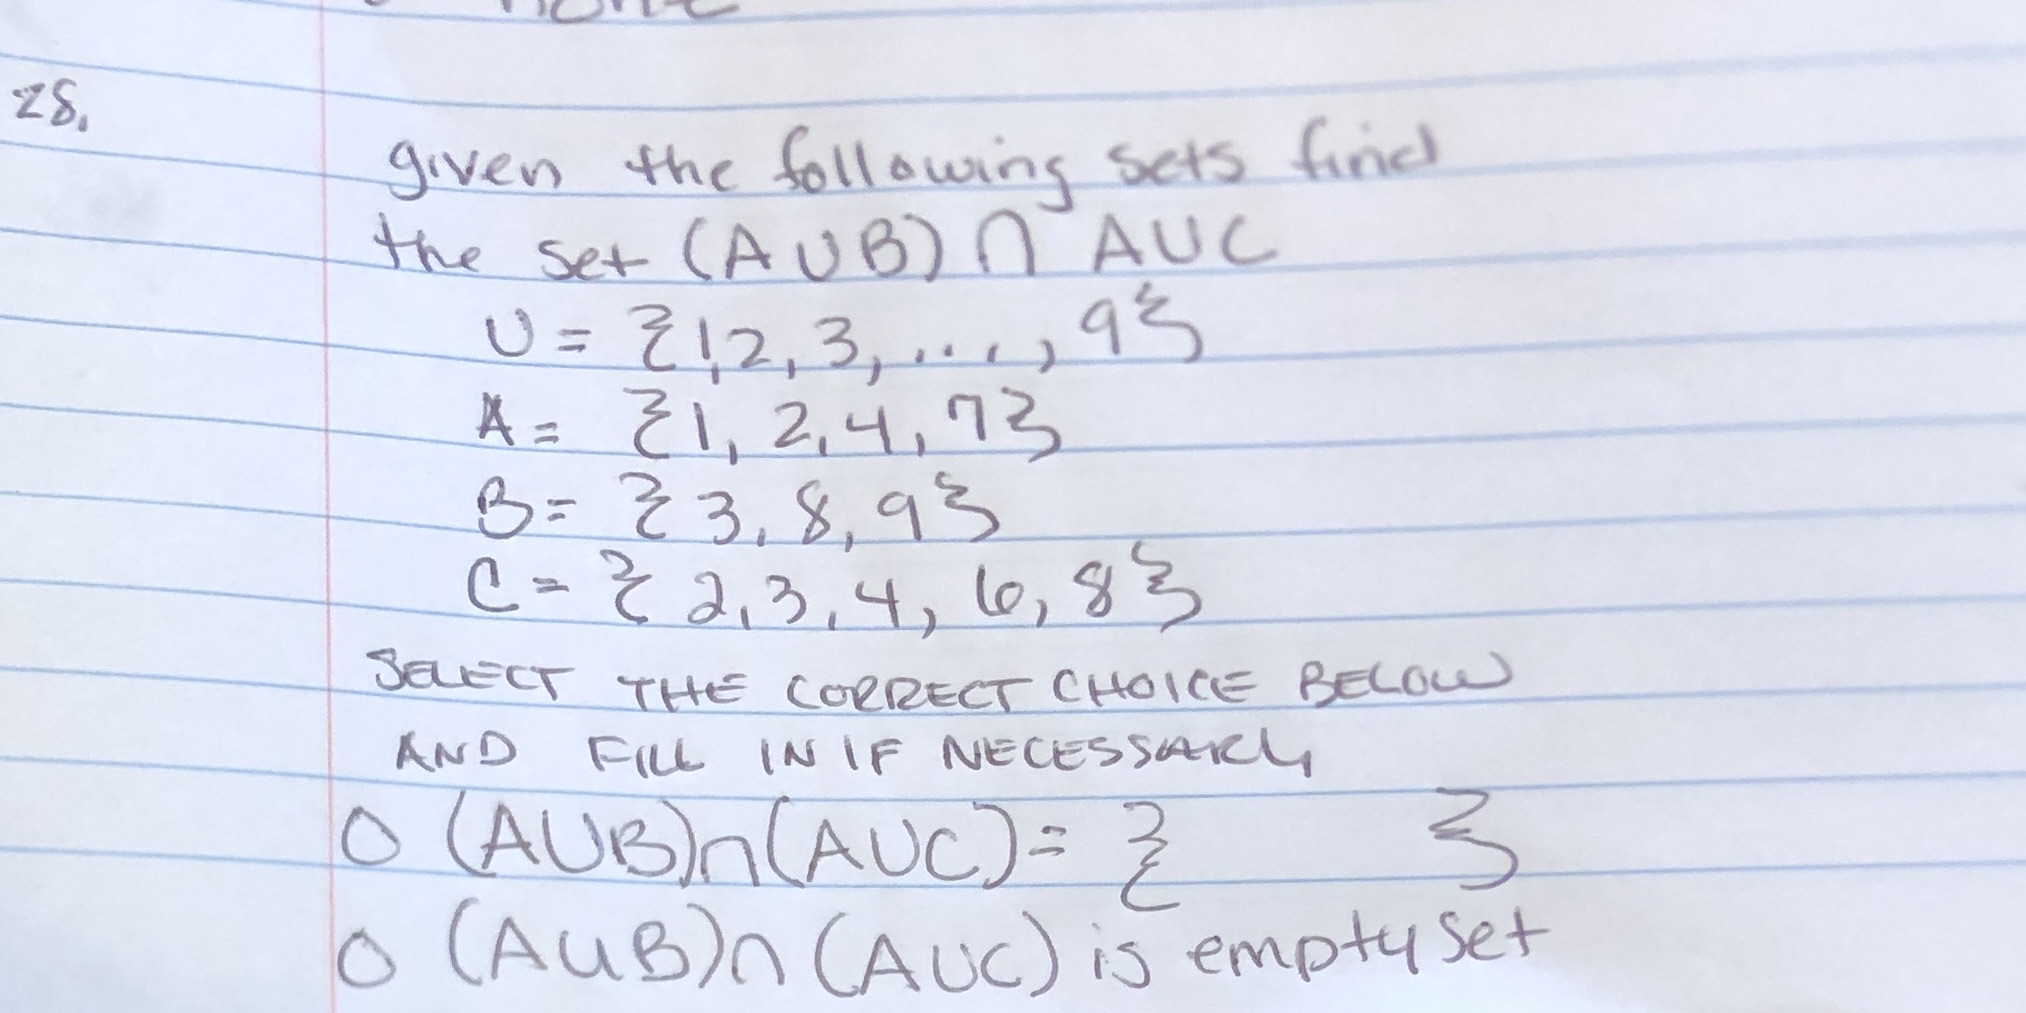 28.
given the following sets find
the set (A∪B) ∩ A∪C
U = {1,2,3,...,9}
A = {1, 2, 4, 7}
B = {3, 8, 9}
C = {2, 3, 4, 6, 8}
SELECT THE CORRECT CHOICE BELOW
AND FILL IN IF NECESSARY
O (A∪B)∩(A∪C) = {          }
O (A∪B)∩(A∪C) is empty set